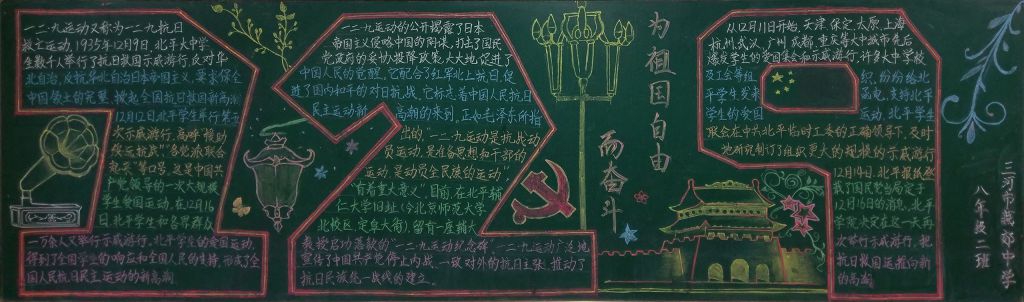 一二·九运动又称为一二九抗日
救亡运动, 1935年12月9日, 北平大中学
生数千人举行了抗日救国示威游行, 反对华
北自治, 反抗华北自治日本帝国主义, 要求保全
中国领土的完整, 掀起全国抗日救国新高潮
12月12日,北平学生举行第五
次示威游行, 高呼"援助
各党派联合
起来"等口号, 这是中国共
产党领导的一次大规模
学生爱国运动, 在12月16
日, 北平学生和各界群众
一万余人又举行示威游行, 北平学生的爱国运动,
得到了全国学生的响应和全国人民的支持, 形成了全
国人民抗日民主运动的新高潮
一二·九运动的公开揭露了日本
帝国主义侵略中国的阴谋, 打击了国民
党政府的妥协投降政策, 大大地促进了
中国人民的觉醒, 它配合了红军北上抗日, 促
进了国内和平的对日抗战, 它标志着中国人民抗日
民主运动新 高潮的来到, 正如毛泽东所指
出的"一二·九运动是抗战动
员运动, 是准备思想和干部的
运动, 是动员全民族的运动"
"有着重大意义" 目前, 在北平辅
仁大学旧址(今北京师范大学
北校区, 定阜大街), 留有一座辅大
教授启功落款的"一二·九运动纪念碑"
宣传了中国共产党停止内战、一致对外的抗日主张, 推动了
抗日民族统一战线的建立。
为祖国自由
而奋斗
从12月11日开始, 天津 保定 太原 上海
杭州, 武汉, 广州 成都, 重庆等大中城市先后
爆发学生的爱国集会和示威游行, 许多大中学校
及工会等组 织, 纷纷给北
平学生发来 函电, 支持北平
学生的爱国 运动, 北平学
联会在中共北平临时工委的正确领导下, 及时
地研究制订了组织更大的规模的示威游行
12月14日, 北平报纸登
载了国民党当局定于
12月16日的消息, 北平
学联决定在这一天再
次举行示威游行, 把
抗日救国运推向新
的高潮
三河市燕郊中学
八年级二班